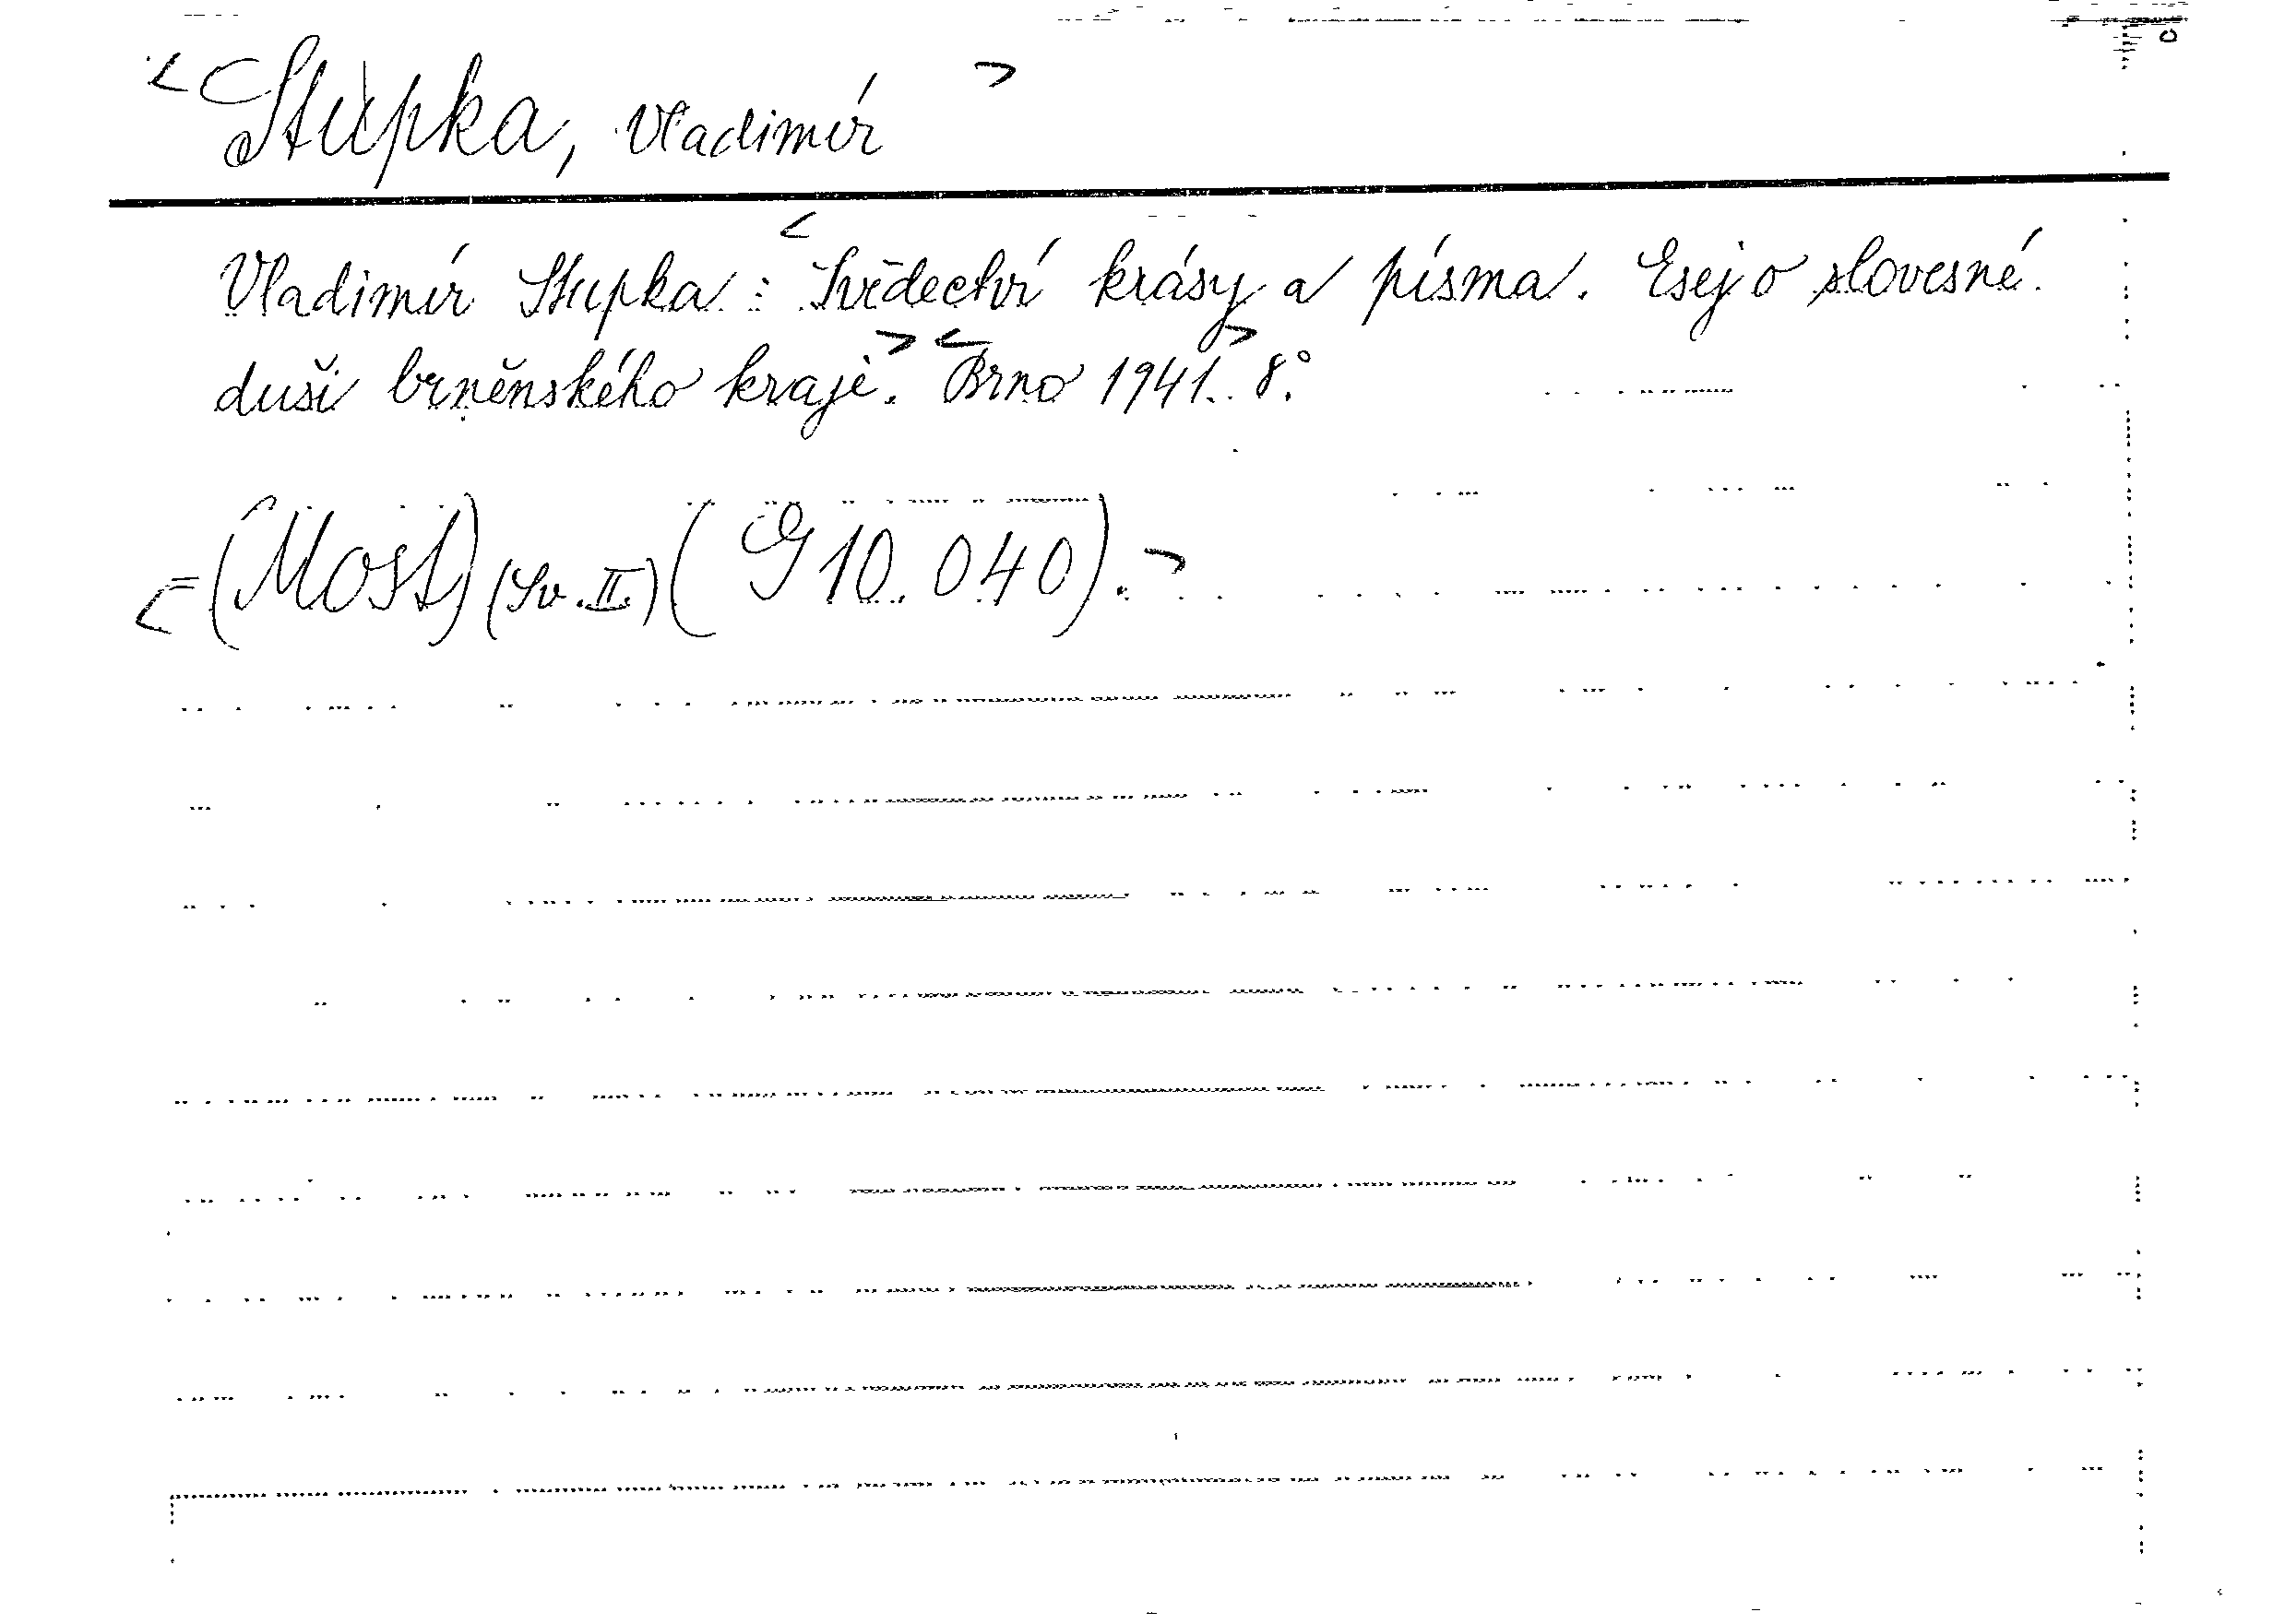 <Stupka, Vladimír>
Vladimír Stupka: <Svědectví krásy a písma. Esej o slovesné
duši brněnského kraje.> <Brno 1941.> 8°.
<(Most) (Sv. II.) (G 10.040).>